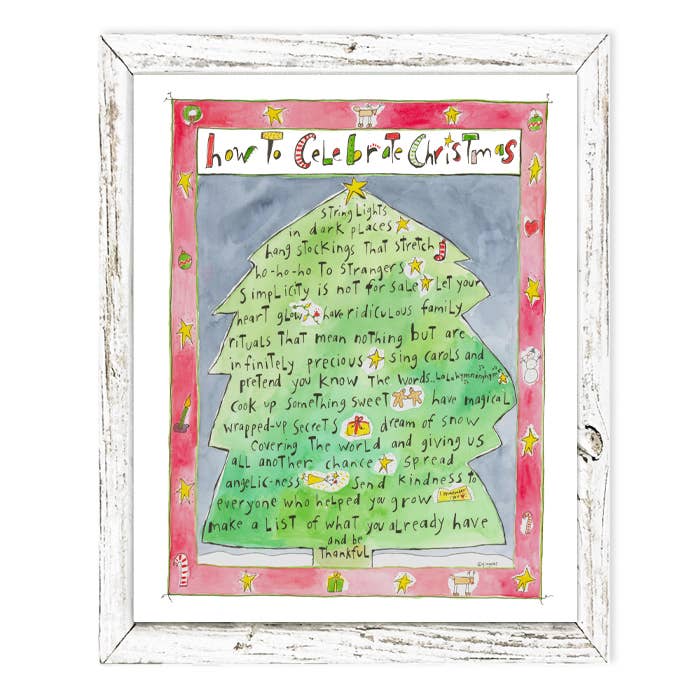 how To Celebrate Christmas
string Lights
in dark places
hang stockings That stretch
ho-ho-ho To strangers
Simplicity is not for sale Let your
heart glow have ridiculous family
rituals That mean nothing but are
infinitely precious sing carols and
pretend you know The words..
Cook up something sweet have magical
wrapped-up secrets dream of snow
Covering The world and giving us
all another chance spread
angelic-ness Send kindness to
everyone who helped you grow
make a List of what you already have
and be
Thankful